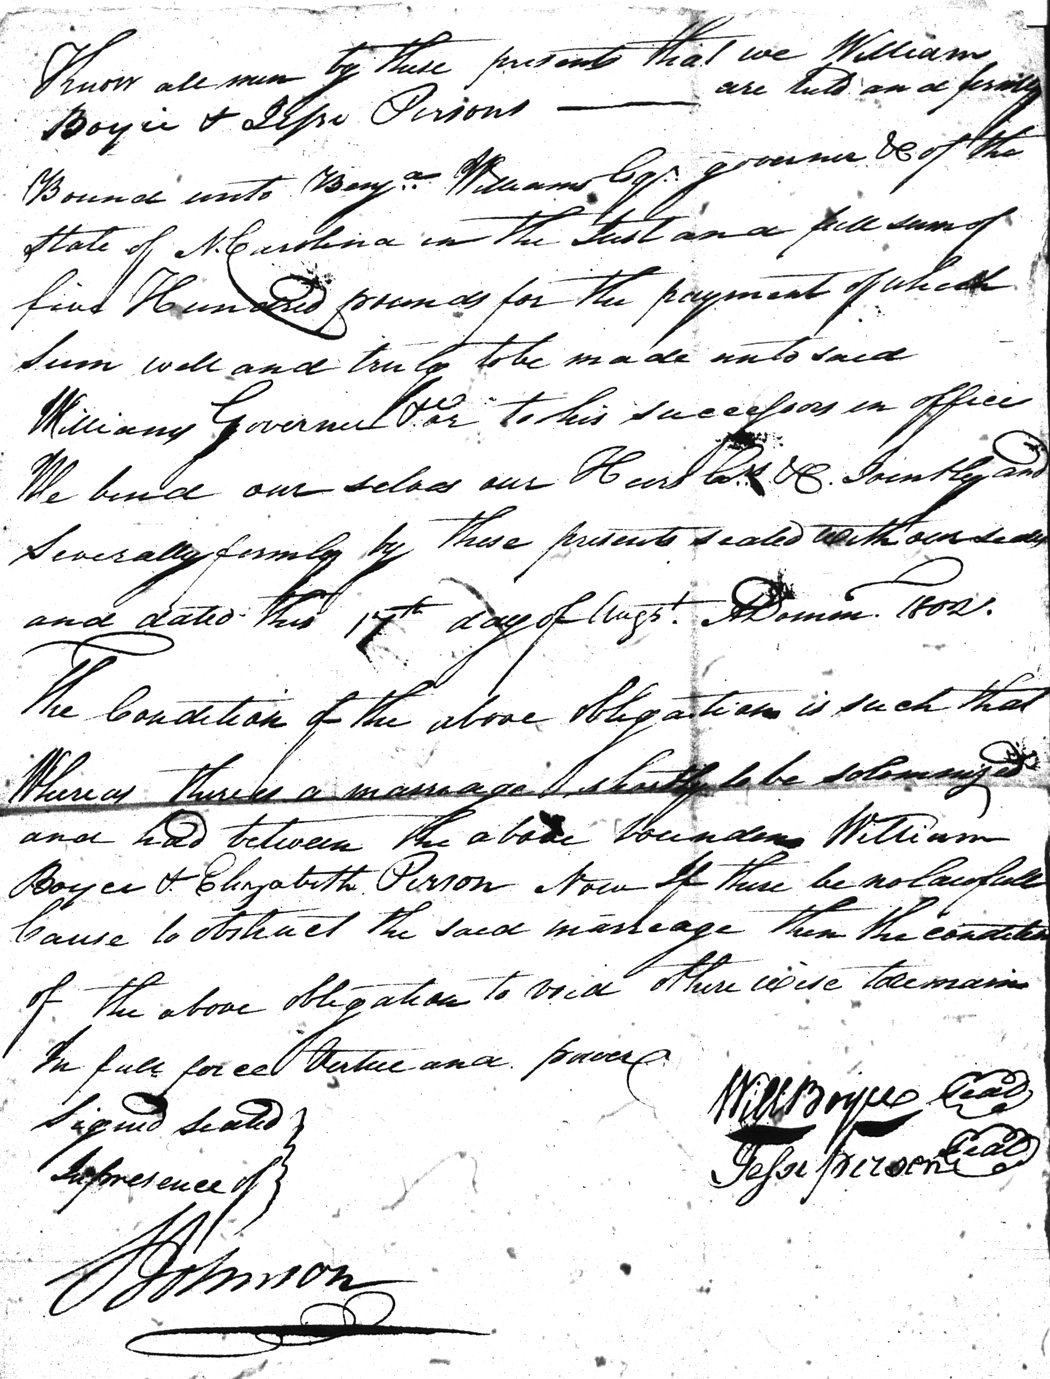 Know all men by these presents that we William
Boyce & Jesse Persons —— are held and firmly
Bound unto Benja Williams Esqr. governer &c of the
State of N. Carolina in the Just and full sum of
five Hundred pounds for the payment of which
Sum well and truly to be made unto said
Williams Governer &c or to his successors in office
We bind our selves our Heirs &c. Jointly and
Severally firmly by these presents sealed with our seals
and dated this 17th day of Augst. A Domin. 1802.
The Condition of the above obligation is such that
Whereas there is a marriage shortly to be solemnized
and had between the above bounden William
Boyce & Elizabeth Person Now If there be no lawfull
Cause to obstruct the said marreage then the condition
of the above obligation to void otherwise to remain
In full force Vertue and power
Signed sealed
In presence of
Will Boyce Seal
Jesse person Seal
Johnson